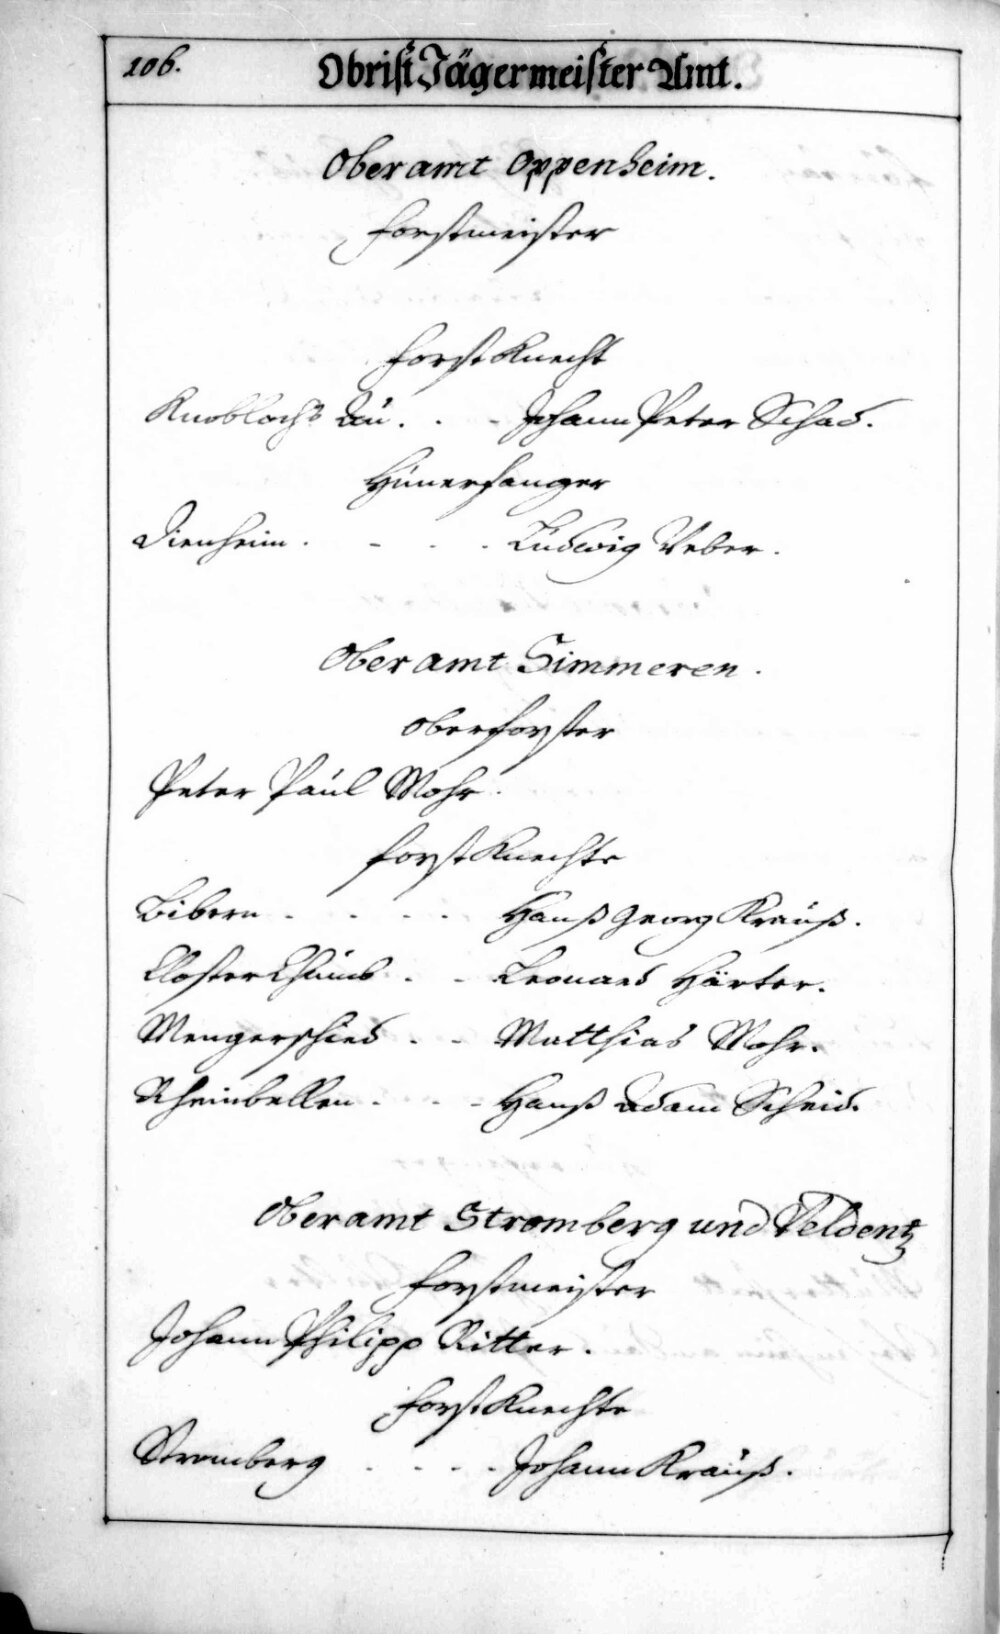 106.
Obrist Jägermeister Amt.
Oberamt Oppenheim.
Forstmeister
Forst Knecht
Knoblochs Au. . . Johann Peter Schad.
Hünerfanger
Dienheim. . . . Ludwig Weber.
Oberamt Simmeren.
Oberforster
Peter Paul Mohr.
Forst Knechte
Bibern . . . . Hanß Georg Krauß.
Closter Chumb . . Leonard Härter.
Mengerschied . . Matthias Mohr.
Rheinbellen . . . Hanß Adam Scheid.
Oberamt Stromberg und Veldentz
Forstmeister
Johann Philipp Ritter.
Forst Knechte
Stromberg . . . . Johann Krauß.